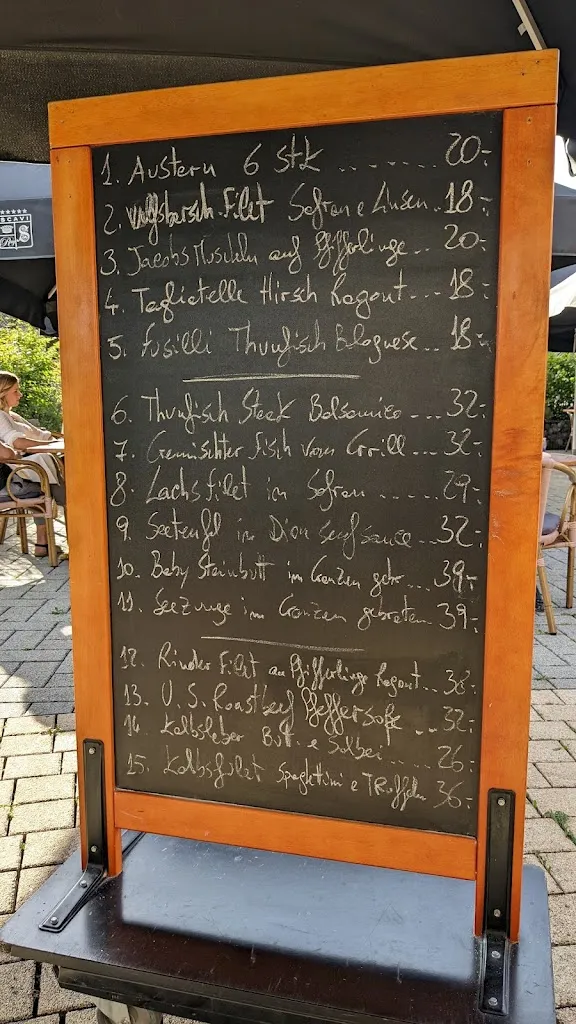 1. Austern 6 Stk ....... 20.-
2. Wolfsbarsch Filet Safran e Linsen.. 18.-
3. Jacobs Muscheln auf Pfifferlinge... 20.-
4. Tagliatelle Hirsch Ragout... 18.-
5. Fusilli Thunfisch Bolognese... 18.-
6. Thunfisch Steak Balsamico ... 32.-
7. Gemischter Fisch vom Grill... 32.-
8. Lachsfilet in Safran ...... 29.-
9. Seeteufel in Dion Senfsauce... 32.-
10. Baby Steinbutt im Ganzen gebr... 39.-
11. Seezunge im Ganzen gebraten.. 39.-
12. Rinder Filet an Pfifferlinge Ragout.. 38.-
13. U.S. Roastbeef Pfeffersoße .. 32.-
14. Kalbsleber But. e Salbei.... 26.-
15. Kalbsfilet Spaghettini e Trüffeln 36.-
SCAVI